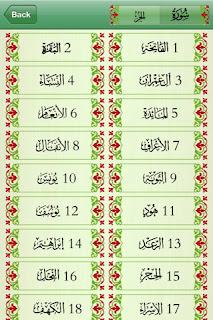 Back سورة الجزء
1 الفاتحة 2 البقرة
3 آل عمران 4 النساء
5 المائدة 6 الأنعام
7 الأعراف 8 الأنفال
9 التوبة 10 يونس
11 هود 12 يوسف
13 الرعد 14 إبراهيم
15 الحجر 16 النحل
17 الإسراء 18 الكهف